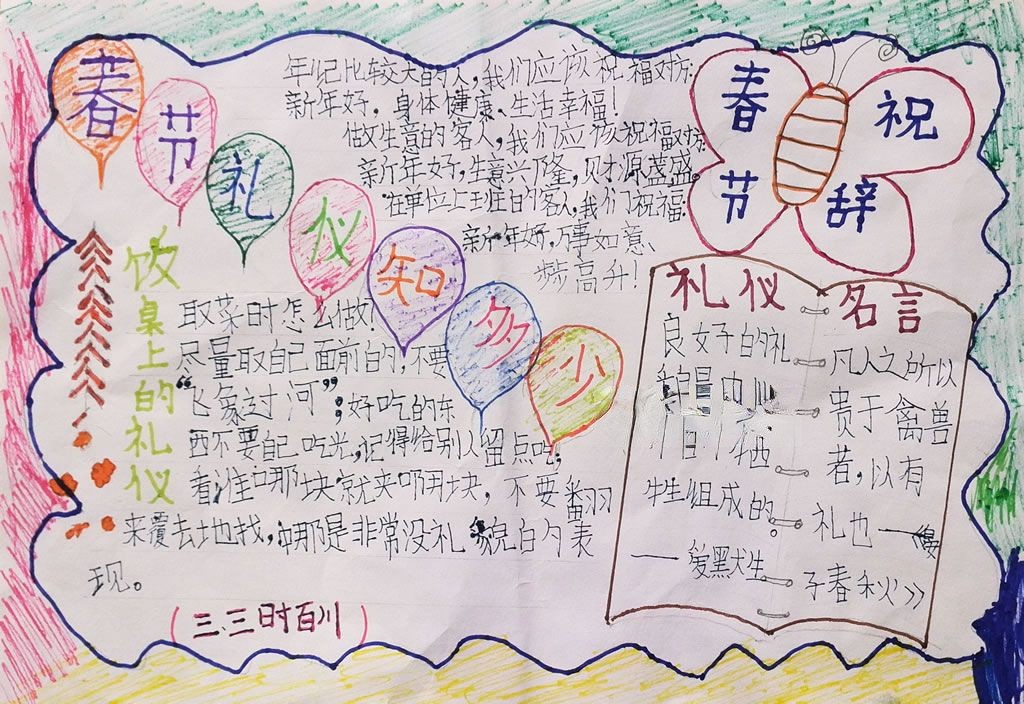 春节礼仪知多少
年纪比较大的人,我们应该祝福对方:
新年好,身体健康、生活幸福!
做生意的客人,我们应该祝福对方:
新年好,生意兴隆,财源茂盛。
在单位上班的客人,我们祝福:
新年好,万事如意、
步高升!
春节
祝辞
饮桌上的礼仪
取菜时怎么做?
尽量取自己面前的,不要
“飞象过河”;好吃的东
西不要自己吃光,记得给别人留点吃;
看准哪块就夹哪块,不要翻
来覆去地找,那是非常没礼貌的表
现。
(三.三时百川)
礼仪
良好的礼
牺
牲组成的。
——爱默生
名言
凡人之所以
贵于禽兽
者,以有
礼也—《晏
子春秋》